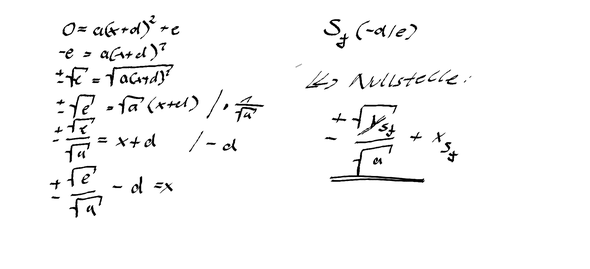 0 = a(x+d)² + e
-e = a(x+d)²
±√e = √a(x+d)²
±√e = √a (x+d) / · 1/√a
±√e/√a = x+d / -d
±√e/√a - d = x
S_f (-d/e)
Nullstelle:
±√y_Sf/√a + x_Sf